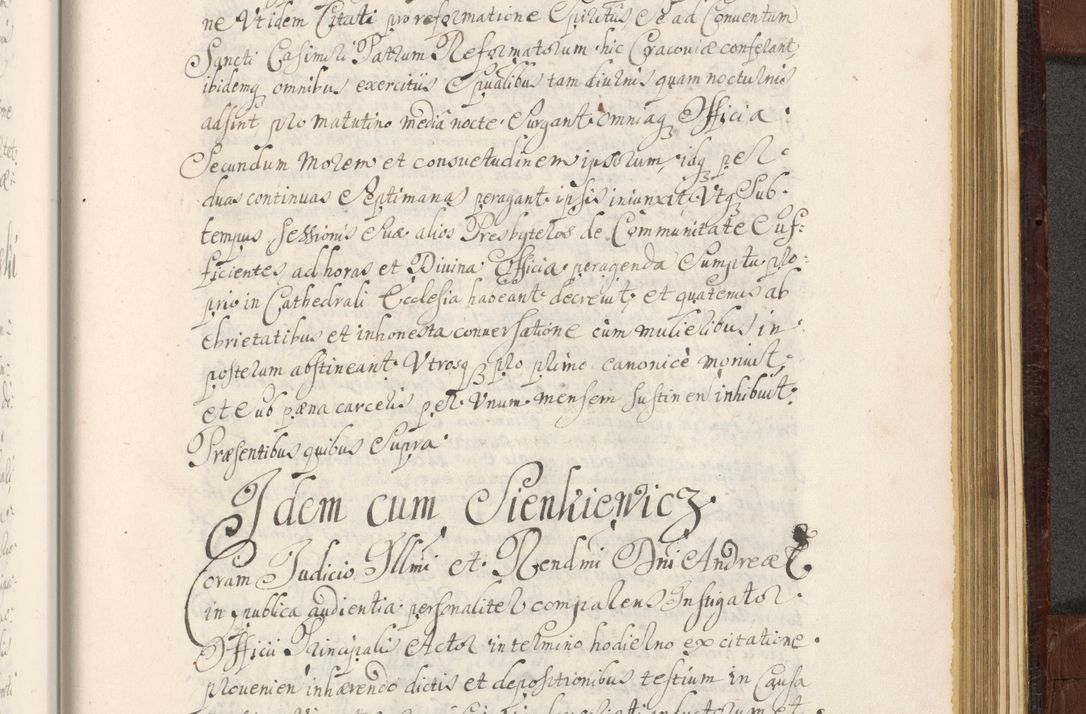 ne Vt idem Citati pro reformatione Spiritus Se ad Conuentum
Sancti Casimiri Patrum Reformatorum hic Cracoviæ conferant
ibidemq, omnibus exercitiis Spualibus tam diurnis quam nocturnis
adsint pro matutino mediâ nocte Surgant. Omniaq Officia
Secundum Morem et consuetudinem ipsorum, idq per
duas continuas Septimanas peragant ipsis iniunxit. Vtq Sub
tempus Sessionis Suæ alios Presbyteros de Communitate Suf:
ficientes, ad horas et Divina Officia peragenda Sumptu pro:
prio in Cathedrali Ecclesia habeant decrevit, et quatenus ab
ebrietatibus et inhonesta conuersatione cum mulieribus in
posterum abstineant. Vtrosq pro primo canonicè monuit,
et Sub pæna carceris per Vnum mensem sustinen inhibuit.
Præsentibus quibus Supra.
Idem cum Sienkiewicz.
Coram Judicio Illmi et Rendmi Dni Andreæ E
in publica audientia personaliter comparens Instigator
Officii Principalis Actor in termino hodierno ex citatione
provenien inhærendo dictis et depositionibus testium in Causa